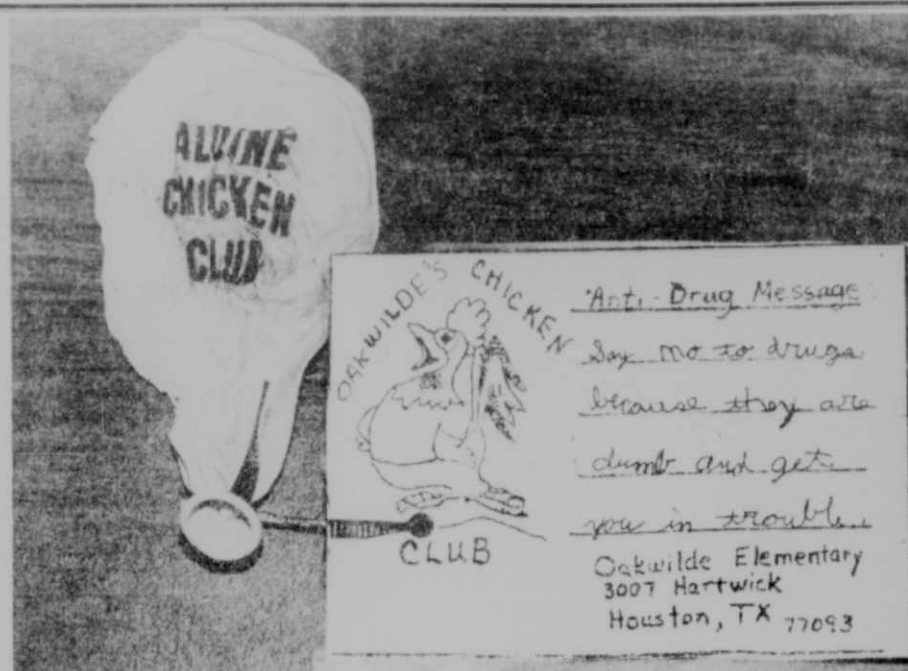 ALDINE
CHICKEN
CLUB
OAKWILDE'S CHICKEN
CLUB
"Anti-Drug Message
Say no to drugs
because they are
dumb and get
you in trouble.
Oakwilde Elementary
3007 Hartwick
Houston, TX 77093